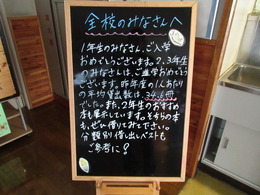 全校のみなさんへ
1年生のみなさん、ご入学
おめでとうございます。2、3年生
のみなさんは、ご進学おめでとう
ございます。昨年度の1人あたり
の平均貸出数は、34.6冊
でした。また、2年生のおすすめ
本も展示しています。そちらの本
も、ぜひ借りてみて下さい。
分類別貸し出しベストも
ご参考に?